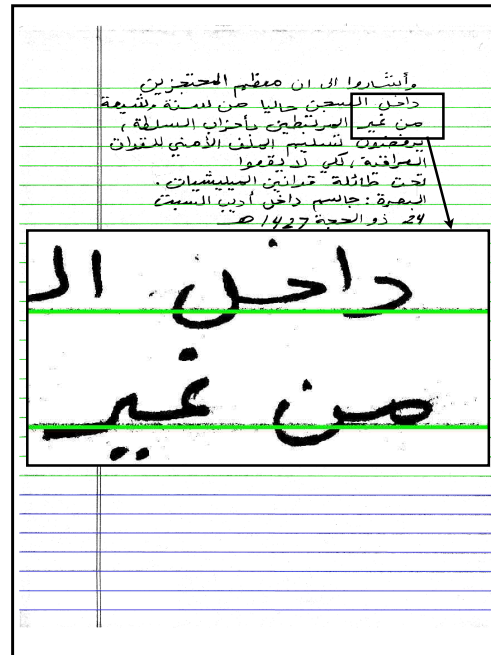 وأشاروا الى ان معظم المحتجزين
داخل السجن حاليا من سنة وشيعة
من غير المرتبطين بأحزاب السلطة ،
يرفضون تسليم الملف الأمني للقوات
العراقية ، لكي لا يقعوا
تحت طائلة قوانين الميليشيات .
البصرة : جاسم داخل أديب السبت
24 ذو الحجة 1427 هـ
داخل ال
من غير